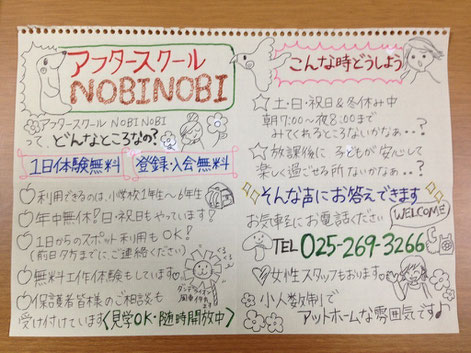 アフタースクール
NOBINOBI
アフタースクール NOBI NOBI
って、どんなところなの?
1日体験無料
登録・入会無料
利用できるのは、小学校1年生〜6年生
年中無休!日・祝日もやっています!
1日からのスポット利用もOK!
(前日夕方までにご連絡ください)
無料工作体験もしています。
保護者皆様のご相談も
受け付けています〈見学OK・随時開放中〉
こんな時どうしよう
☆土・日・祝日&冬休み中
朝7:00〜夜8:00まで
みてくれるところないかなぁ・・?
☆放課後に子どもが安心して
楽しく過ごせる所ないかなぁ・・?
そんな声にお答えできます
お気軽にお電話ください
WELCOME
TEL 025-269-3266
女性スタッフもおります。
小人数制で
アットホームな雰囲気です♪